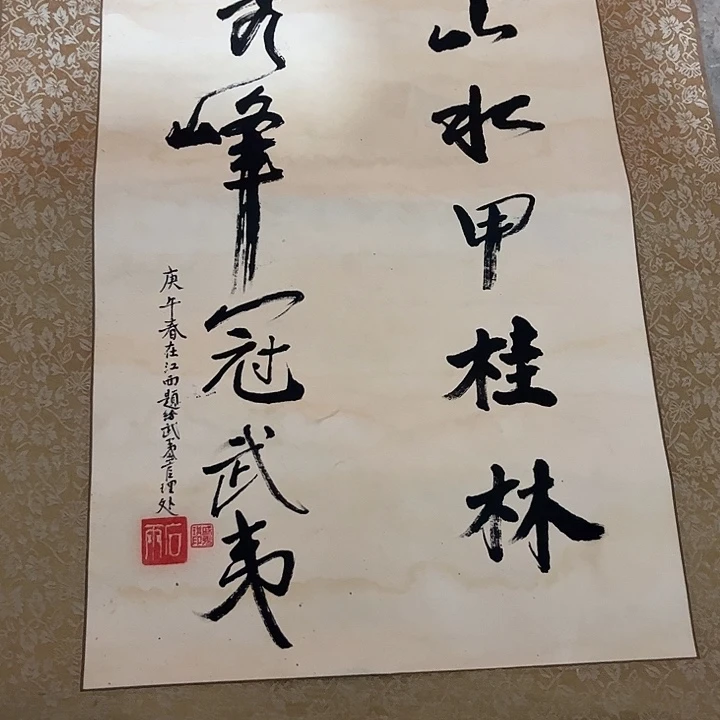 山水甲桂林
秀峰冠武夷
庚午春在江西題给武夷管理处
石雨